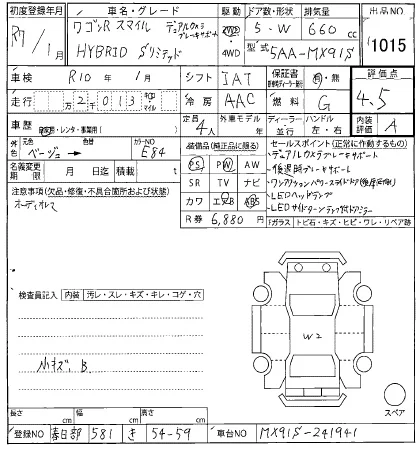 初度登録年月 車名・グレード 駆動 ドア数・形状 排気量 出品NO
R7/1月 ワゴンR スマイル デュアルカメラブレーキサポート 2WD 4WD 5-W 660cc 1015
HYBRID Sリミテッド 型式 5AA-MX91S
車検 R10年 1月 シフト IAT 保証書 有・無 評価点
走行 2万013 km・マイル 冷房 AAC 燃料 G 4.5
車歴 自家用・レンタ・事業用( ) 定員 4人 外車モデル 年 ディーラー・並行 ハンドル 左・右 内装 A
元色 ベージュ → 色替 カラーNO E84
装備品(純正品に限る) セールスポイント(正常に作動するもの)
名義変更期限 月 日 積載 t
PS PW AW
SR TV ナビ
カワ エアB ABS
R券 6,880円
・デュアルカメラブレーキサポート
・後退時ブレーキサポート
・ワンアクションパワースライドドア(後席両側)
・LEDヘッドランプ
・LEDサイドターンランプ付ドアミラー
注意事項(欠品・修復・不具合箇所および状態)
オーディオレス
ガラス トビ石・キズ・ヒビ・ワレ・リペア跡
検査員記入 内装 汚レ・スレ・キズ・キレ・コゲ・穴
小キズ B
W2
スペア
長さ cm 幅 cm 高さ cm
登録NO 春日部 581 き 54-59 車台NO MX91S-241941